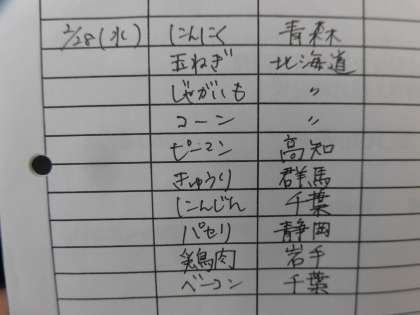 2/28(水) にんにく 青森
玉ねぎ 北海道
じゃがいも 〃
コーン 〃
ピーマン 高知
きゅうり 群馬
にんじん 千葉
パセリ 静岡
鶏肉 岩手
ベーコン 千葉